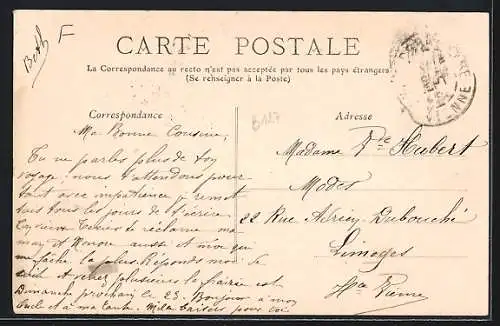 Both F
CARTE POSTALE
La Correspondance au recto n'est pas acceptée par tous les pays étrangers
(Se renseigner à la Poste)
Correspondance
Adresse
B127
Ma Bonne Cousine,
Tu ne parles plus de ton
voyage nous t'attendons pour
tant avec impatience je remet
tais tous les jours de t'écrire
ma
man et Nonon aussi et moi qui
me fâche la plus. Réponds moi de
suite et venez plusieurs la frairie est
Dimanche prochain le 23. Bonjour à mon
oncle et à ma tante. Mille baisers pour toi
Madame Vve Hubert
Modes
22 Rue Adrien Dubouché
Limoges
Hte Vienne